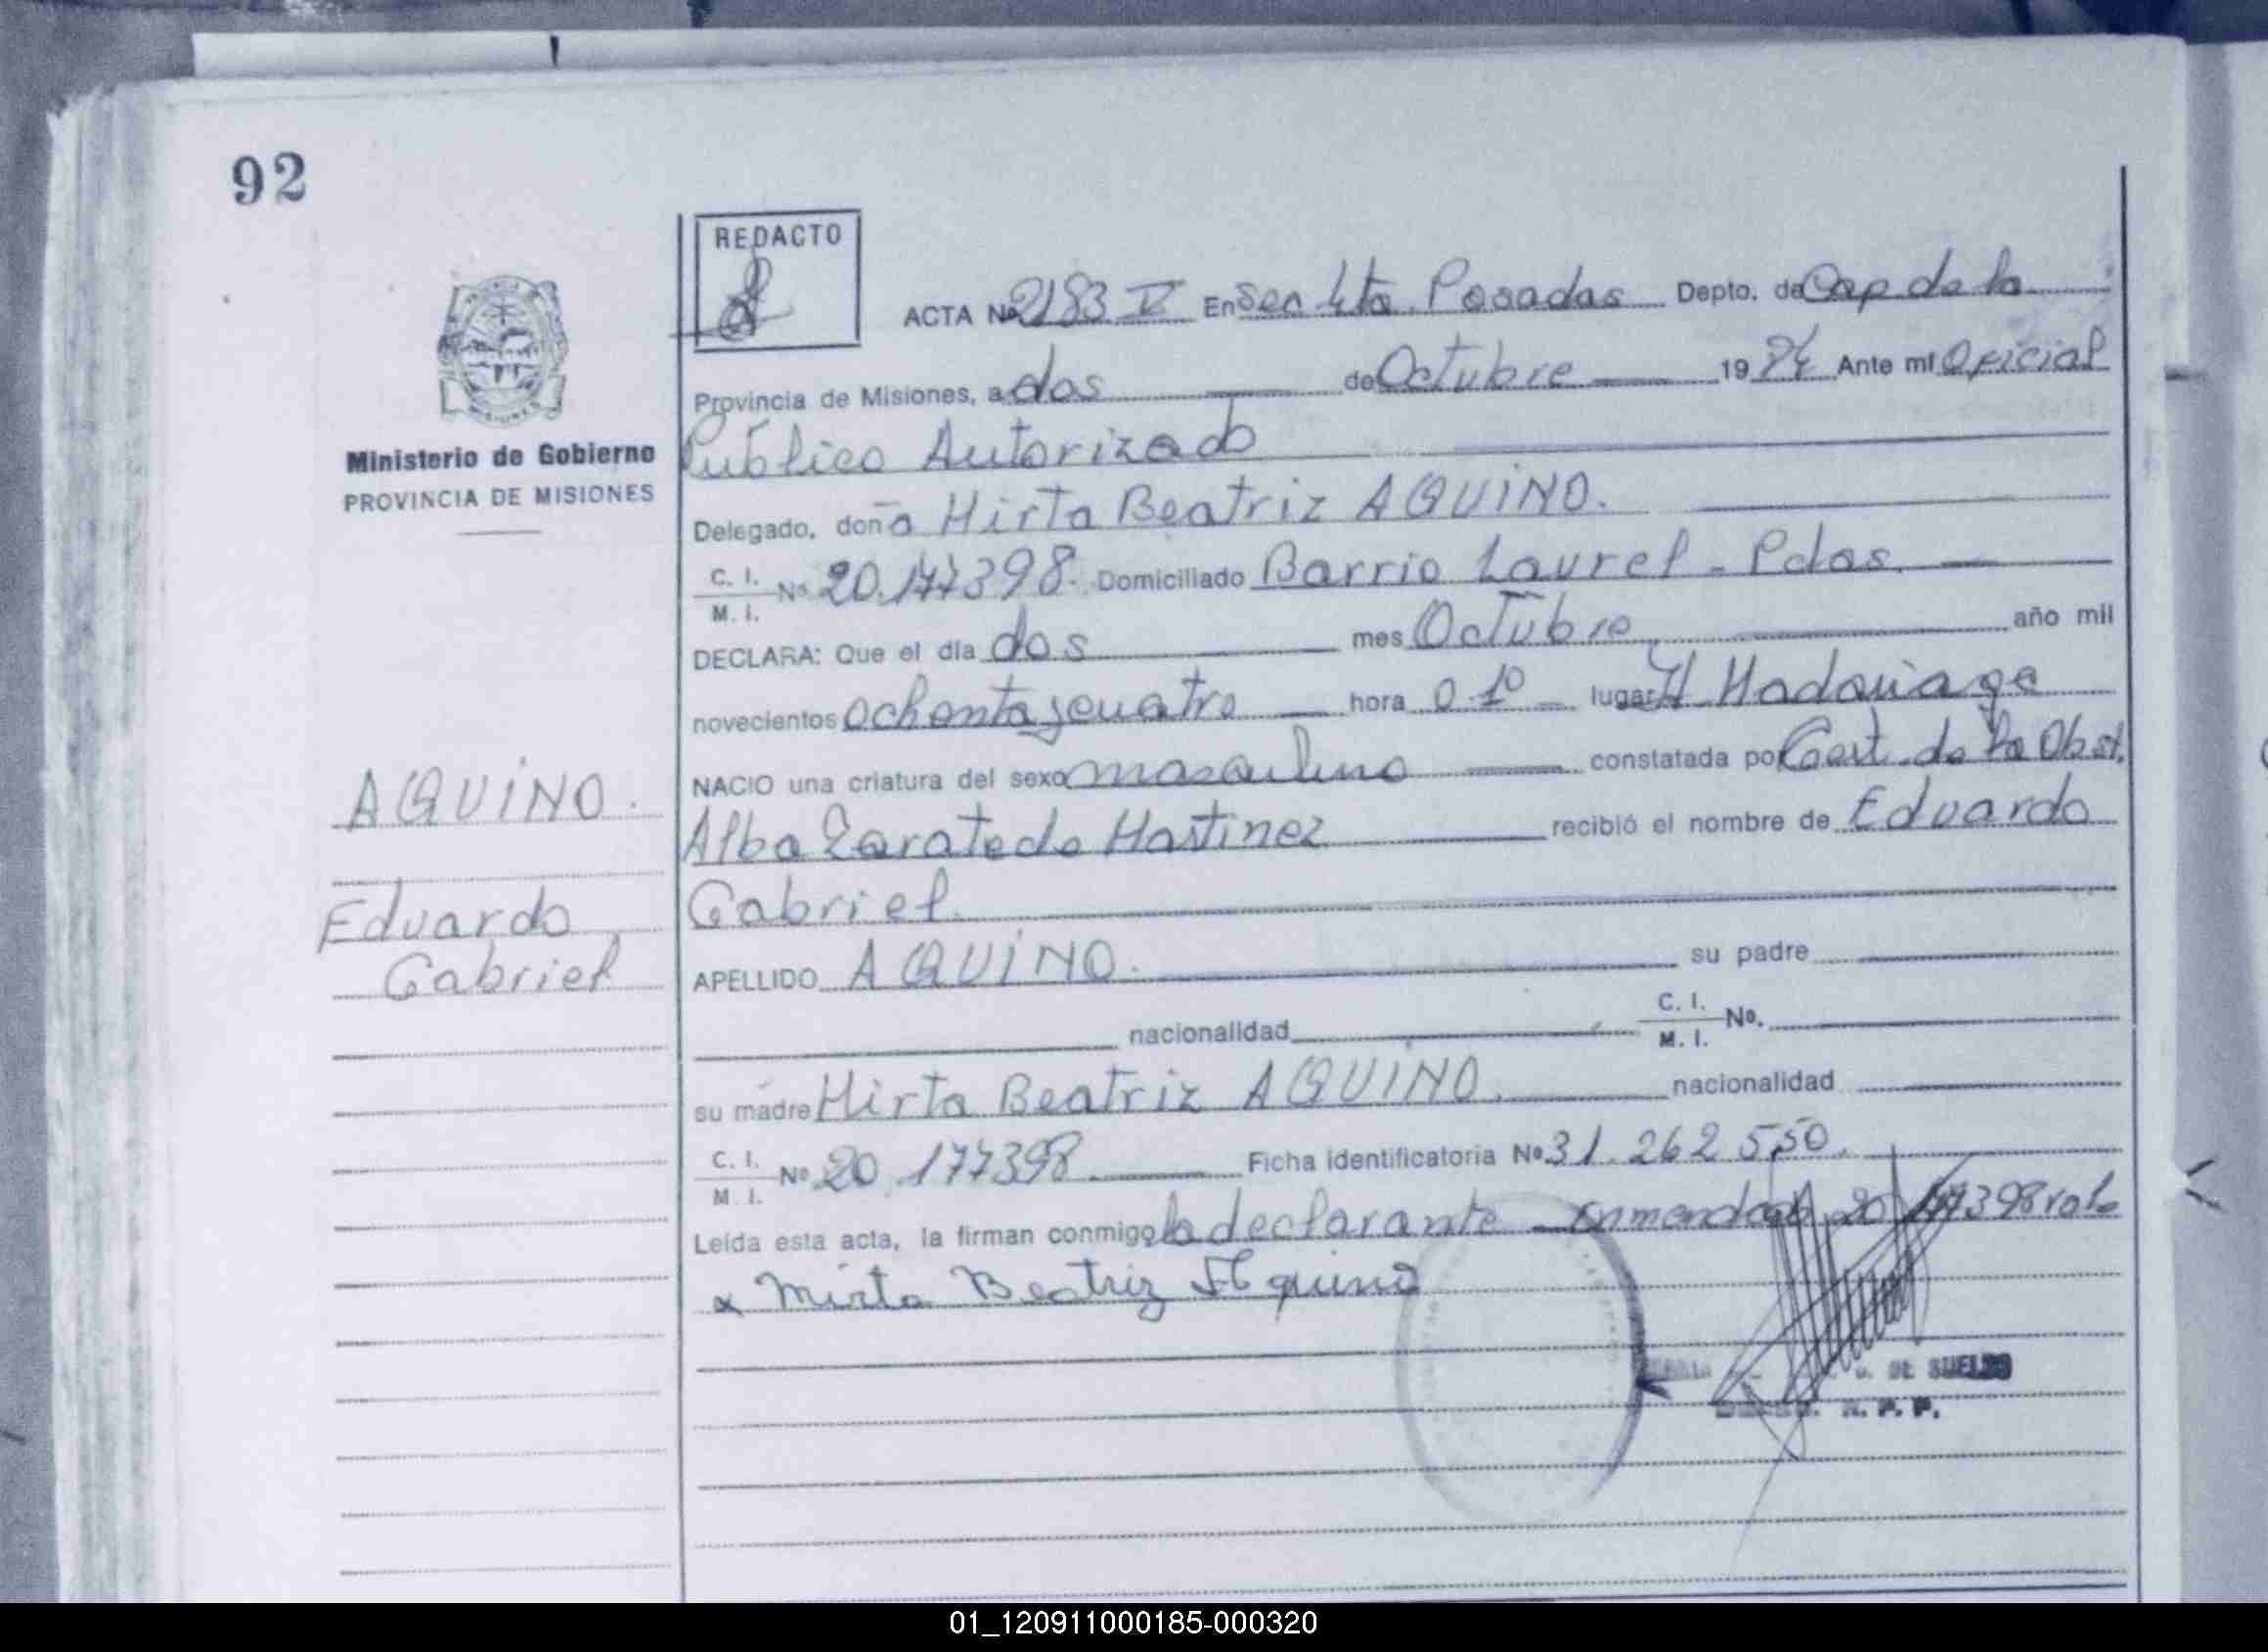 92
REDACTO
ACTA Nº 2183 V En Sec 4ta. Posadas Depto. de Cap. de la
Provincia de Misiones, a dos de Octubre 1984 Ante mí Oficial
Público Autorizado
Ministerio de Gobierno
PROVINCIA DE MISIONES
Delegado, doña Mirta Beatriz AQUINO.
C. I. / M. I. Nº 20.177398. Domiciliado Barrio Laurel - Pdas.
DECLARA: Que el día dos mes Octubre año mil
novecientos ochenta y cuatro hora 0.10 lugar H Madariaga
NACIO una criatura del sexo masculino constatada por Cert. de la Obst.
AQUINO.
Alba Zarate de Martinez recibió el nombre de Eduardo
Eduardo
Gabriel.
Gabriel
APELLIDO AQUINO. su padre
nacionalidad C. I. / M. I. Nº.
su madre Mirta Beatriz AQUINO. nacionalidad
C. I. / M. I. Nº 20.177398. Ficha identificatoria Nº 31.262550.
Leída esta acta, la firman conmigo la declarante - Enmendado 20 177398 vale
x Mirta Beatriz Aquino
DE SUELDO
R. P. P.
01_120911000185-000320